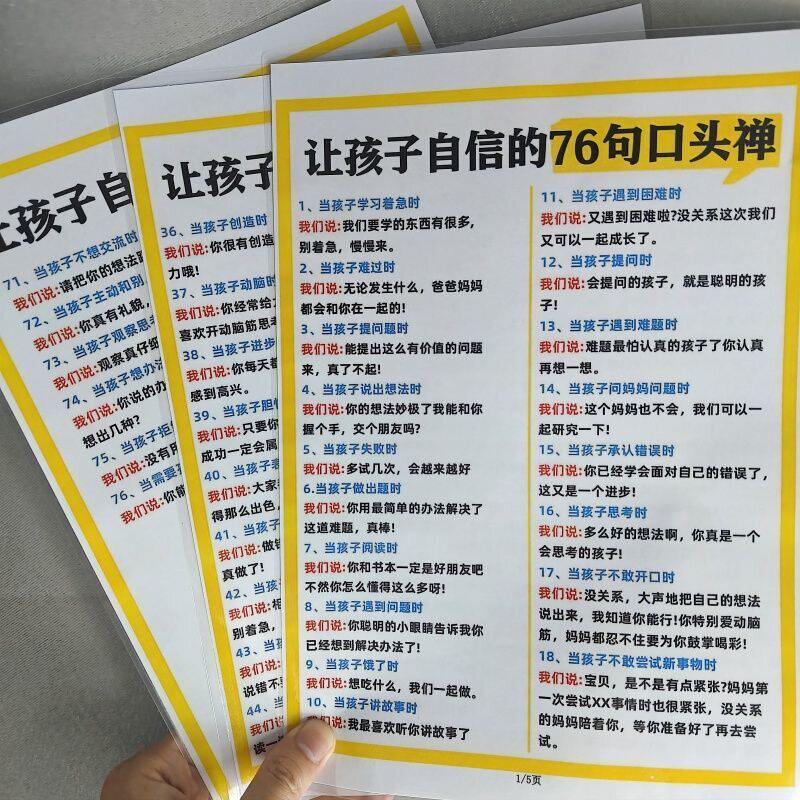 让孩子自信的76句口头禅
1、当孩子学习着急时
我们说:我们要学的东西有很多,
别着急,慢慢来。
2、当孩子难过时
我们说:无论发生什么,爸爸妈妈
都会和你在一起的!
3、当孩子提问题时
我们说:能提出这么有价值的问题
来,真了不起!
4、当孩子说出想法时
我们说:你的想法妙极了我能和你
握个手,交个朋友吗?
5、当孩子失败时
我们说:多试几次,会越来越好
6.当孩子做出题时
我们说:你用最简单的办法解决了
这道难题,真棒!
7、当孩子阅读时
我们说:你和书本一定是好朋友吧
不然你怎么懂得这么多呀!
8、当孩子遇到问题时
我们说:你聪明的小眼睛告诉我你
已经想到解决办法了!
9、当孩子饿了时
我们说:想吃什么,我们一起做。
10、当孩子讲故事时
我们说:我最喜欢听你讲故事了
11、当孩子遇到困难时
我们说:又遇到困难啦?没关系这次我们
又可以一起成长了。
12、当孩子提问时
我们说:会提问的孩子,就是聪明的孩
子!
13、当孩子遇到难题时
我们说:难题最怕认真的孩子了你认真
再想一想。
14、当孩子问妈妈问题时
我们说:这个妈妈也不会,我们可以一
起研究一下!
15、当孩子承认错误时
我们说:你已经学会面对自己的错误了,
这又是一个进步!
16、当孩子思考时
我们说:多么好的想法啊,你真是一个
会思考的孩子!
17、当孩子不敢开口时
我们说:没关系,大声地把自己的想法
说出来,我知道你能行!你特别爱动脑
筋,妈妈都忍不住要为你鼓掌喝彩!
18、当孩子不敢尝试新事物时
我们说:宝贝,是不是有点紧张?妈妈第
一次尝试XX事情时也很紧张,没关系
的妈妈陪着你,等你准备好了再去尝
试。
1/5页
让孩子
36、当孩子创造时
我们说:你很有创造
力哦!
37、当孩子动脑时
我们说:你经常给
喜欢开动脑筋思考
38、当孩子进步
我们说:你每天都
感到高兴。
39、当孩子胆
我们说:只要你
成功一定会属
40、当孩子
我们说:大家
得那么出色,
41、当孩子
我们说:做错
真做了!
42、当孩
我们说:
别着急,
43、当
我们说
说错不
44、
我们
读一
让孩子自
71、当孩子不想交流时
我们说:请把你的想法
72、当孩子主动和别
我们说:你真有礼貌,
73、当孩子观察思考
我们说:观察真仔细
74、当孩子想办法
我们说:你说的办
想出几种?
75、当孩子拒
我们说:没有用
76、当需要
我们说:你能